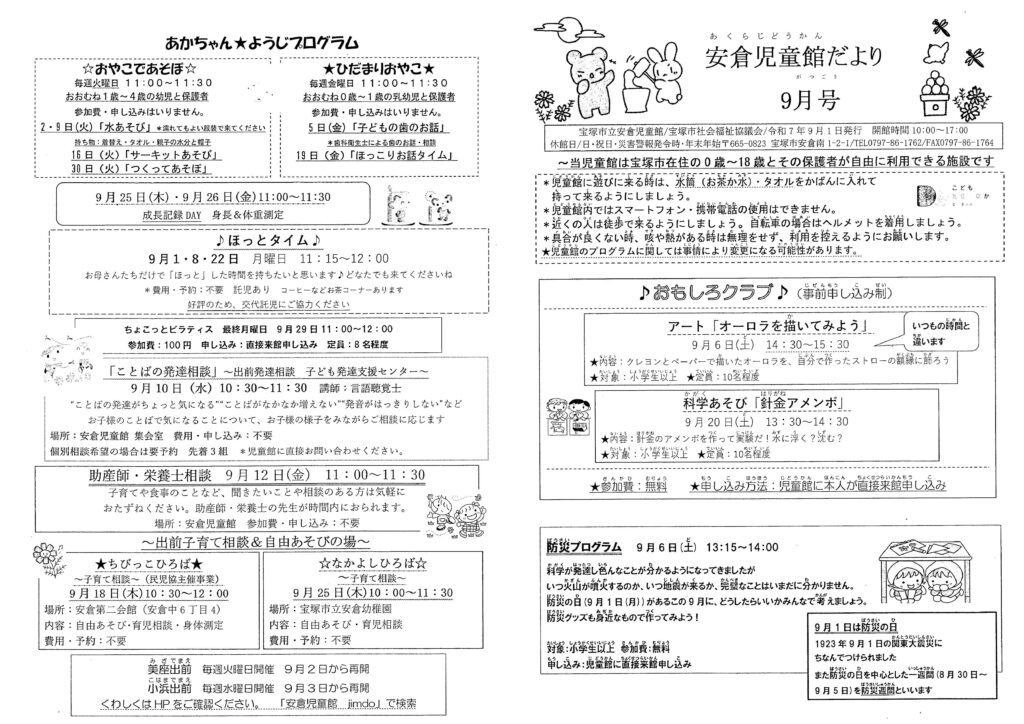 あかちゃん★ようじプログラム
☆おやこであそぼ☆
毎週火曜日 11:00～11:30
おおむね1歳～4歳の幼児と保護者
参加費・申し込みはいりません。
2・9日(火)「水あそび」＊濡れてもよい服装で来てください
持ち物：着替え・タオル・親子の水分と帽子
16日(火)「サーキットあそび」
30日(火)「つくってあそぼ」
★ひだまりおやこ★
毎週金曜日 11:00～11:30
おおむね0歳～1歳の乳幼児と保護者
参加費・申し込みはいりません。
5日(金)「子どもの歯のお話」
＊歯科衛生士による歯のお話・相談
19日(金)「ほっこりお話タイム」
9月25日(木)・9月26日(金)11:00～11:30
成長記録DAY 身長＆体重測定
♪ほっとタイム♪
9月1・8・22日 月曜日 11：15～12：00
お母さんたちだけで「ほっと」した時間を持ちたいと思います♪どなたでも来てくださいね
＊費用・予約：不要 託児あり コーヒーなどお茶コーナーあります
好評のため、交代託児にご協力ください
ちょこっとピラティス 最終月曜日 9月29日11:00～12:00
参加費：100円 申し込み：直接来館申し込み 定員：8名程度
「ことばの発達相談」～出前発達相談 子ども発達支援センター～
9月10日（水）10：30～11：30 講師：言語聴覚士
“ことばの発達がちょっと気になる”“ことばがなかなか増えない”“発音がはっきりしない”など
お子様のことばで気になることについて、お子様の様子をみながらご相談に応じます
場所：安倉児童館 集会室 費用・申し込み：不要
個別相談希望の場合は要予約 先着3組 ＊児童館に直接お問い合わせください。
助産師・栄養士相談 9月12日(金) 11：00～11：30
子育てや食事のことなど、聞きたいことや相談のある方は気軽に
おたずねください。助産師・栄養士の先生が時間内におられます。
場所：安倉児童館 参加費・申し込み：不要
～出前子育て相談＆自由あそびの場～
★ちびっこひろば★
～子育て相談～（民児協主催事業）
9月18日(木)10:30～12:00
場所：安倉第二会館（安倉中6丁目4）
内容：自由あそび・育児相談・身体測定
費用・予約：不要
☆なかよしひろば☆
～子育て相談～
9月25日(木)10:00～11:30
場所：宝塚市立安倉幼稚園
内容：自由あそび・育児相談
費用・予約：不要
みざでまえ
美座出前 毎週火曜日開催 9月2日から再開
こはまでまえ
小浜出前 毎週水曜日開催 9月3日から再開
くわしくはHPをご確認ください。 「安倉児童館 jimdo」で検索
あくらじどうかん
安倉児童館だより
がつごう
9月号
宝塚市立安倉児童館/宝塚市社会福祉協議会/令和7年9月1日発行 開館時間10:00～17:00
休館日/日・祝日・災害警報発令時・年末年始〒665-0823 宝塚市安倉南1-2-1/TEL0797-86-1762/FAX0797-86-1764
～当児童館は宝塚市在住の0歳～18歳とその保護者が自由に利用できる施設です
＊児童館に遊びに来る時は、水筒（お茶か水）・タオルをかばんに入れて
持って来るようにしましょう。
＊児童館内ではスマートフォン・携帯電話の使用はできません。
＊近くの人は徒歩で来るようにしましょう。自転車の場合はヘルメットを着用しましょう。
＊具合が良くない時、咳や熱がある時は無理をせず、利用を控えるようにお願いします。
★児童館のプログラムに関しては事情により変更になる可能性があります。
こども
♪おもしろクラブ♪（事前申し込み制）
アート「オーロラを描いてみよう」
9月6日(土) 14：30～15：30
いつもの時間と
違います
★内容：クレヨンとペーパーで描いたオーロラを、自分で作ったストローの額縁に飾ろう
★対象：小学生以上 ★定員：10名程度
かがく はりがね
科学あそび「針金アメンボ」
9月20日(土) 13：30～14：30
★内容：針金のアメンボを作って実験だ！水に浮く？沈む？
★対象：小学生以上 ★定員：10名程度
★参加費：無料 ★申し込み方法：児童館に本人が直接来館申し込み
防災プログラム 9月6日(土) 13:15～14:00
科学が発達し色んなことが分かるようになってきましたが
いつ火山が噴火するのか、いつ地震が来るか、完璧なことはいまだに分かりません。
防災の日（9月1日(月)）があるこの9月に、どうしたらいいかみんなで考えましょう。
防災グッズも身近なもので作ってみよう！
対象：小学生以上 参加費：無料
申し込み：児童館に直接来館申し込み
9月1日は防災の日
1923年9月1日の関東大震災に
ちなんでつけられました
また防災の日を中心とした一週間（8月30日～
9月5日）を防災週間といいます